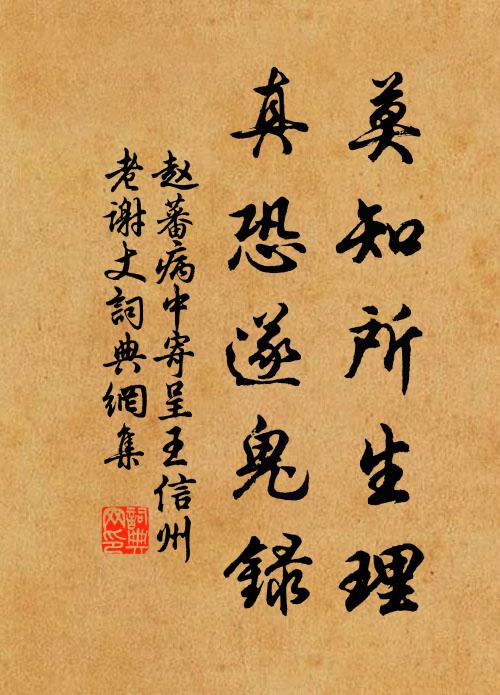 莫知所生理
真恐遂鬼録
赵蕃病中寄呈王信州
老谢丈詞典網集
詞典